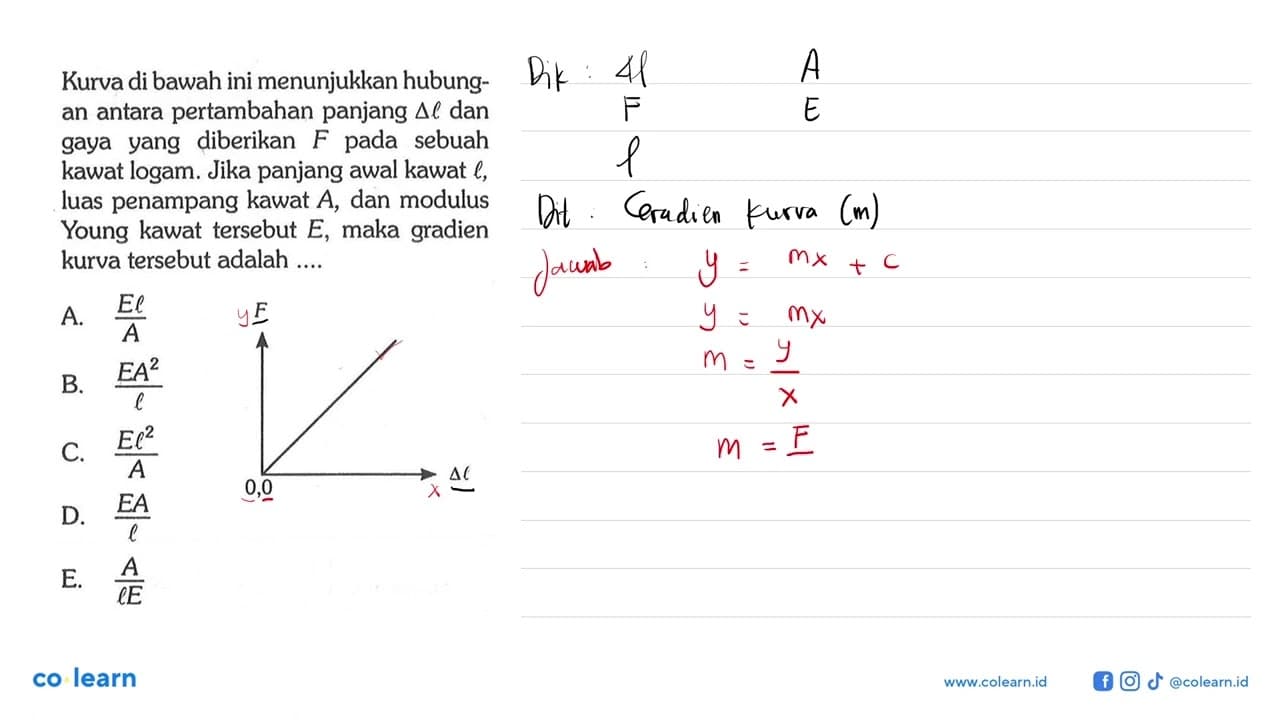 Kurva di bawah ini menunjukkan hubung-
an antara pertambahan panjang Δℓ dan
gaya yang diberikan F pada sebuah
kawat logam. Jika panjang awal kawat ℓ,
luas penampang kawat A, dan modulus
Young kawat tersebut E, maka gradien
kurva tersebut adalah ....
A. Eℓ/A
B. EA²/ℓ
C. Eℓ²/A
D. EA/ℓ
E. A/ℓE
y F
0,0
x Δℓ
Dik : Δl A
F E
l
Dit : Gradien kurva (m)
Jawab : y = mx + c
y = mx
m = y/x
m = F
co learn
www.colearn.id
@colearn.id